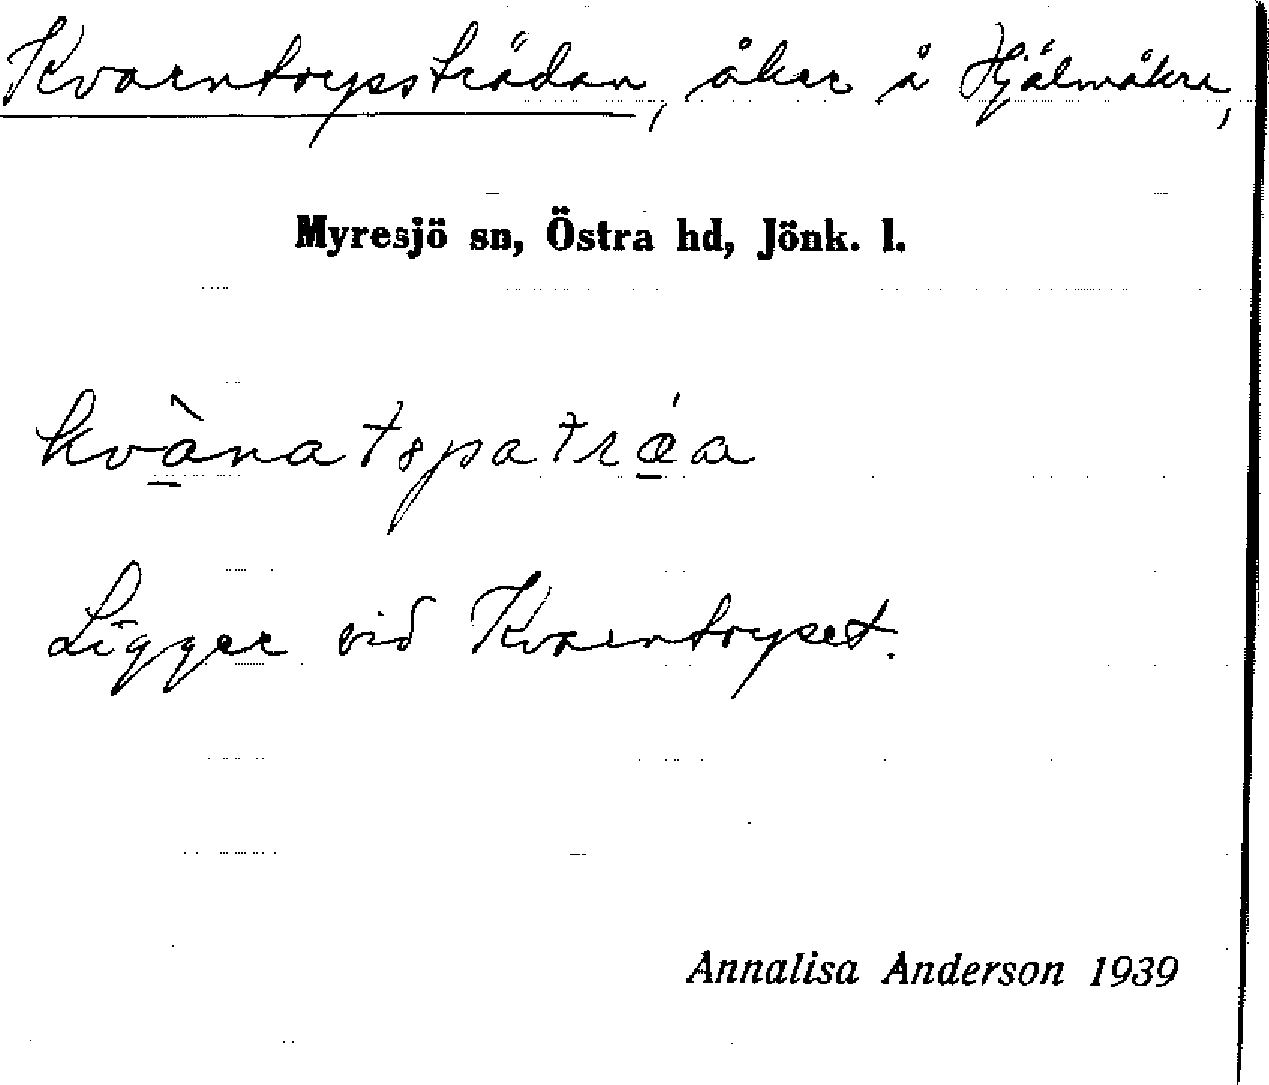 Kvarntorpsträdan, åker å Hjälmåkra,
Myresjö sn, Östra hd, Jönk. l.
Ligger vid Kvarntorpet.
Annalisa Anderson 1939